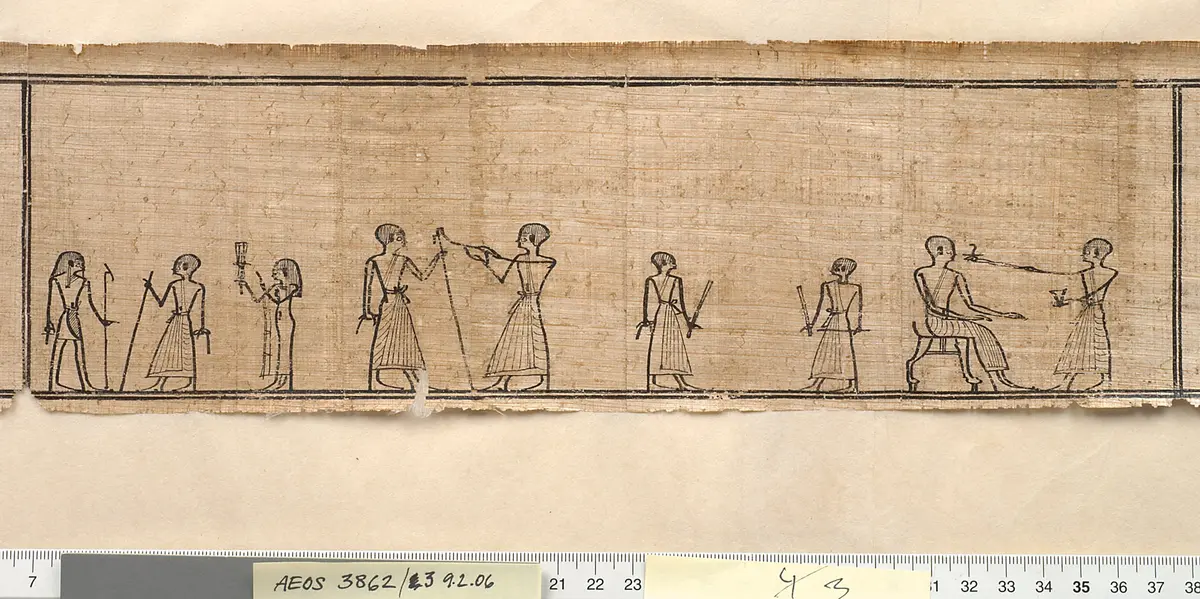 7
AEOS 3862/3 9.2.06
21 22 23
31 32 33 34 35 36 37 38